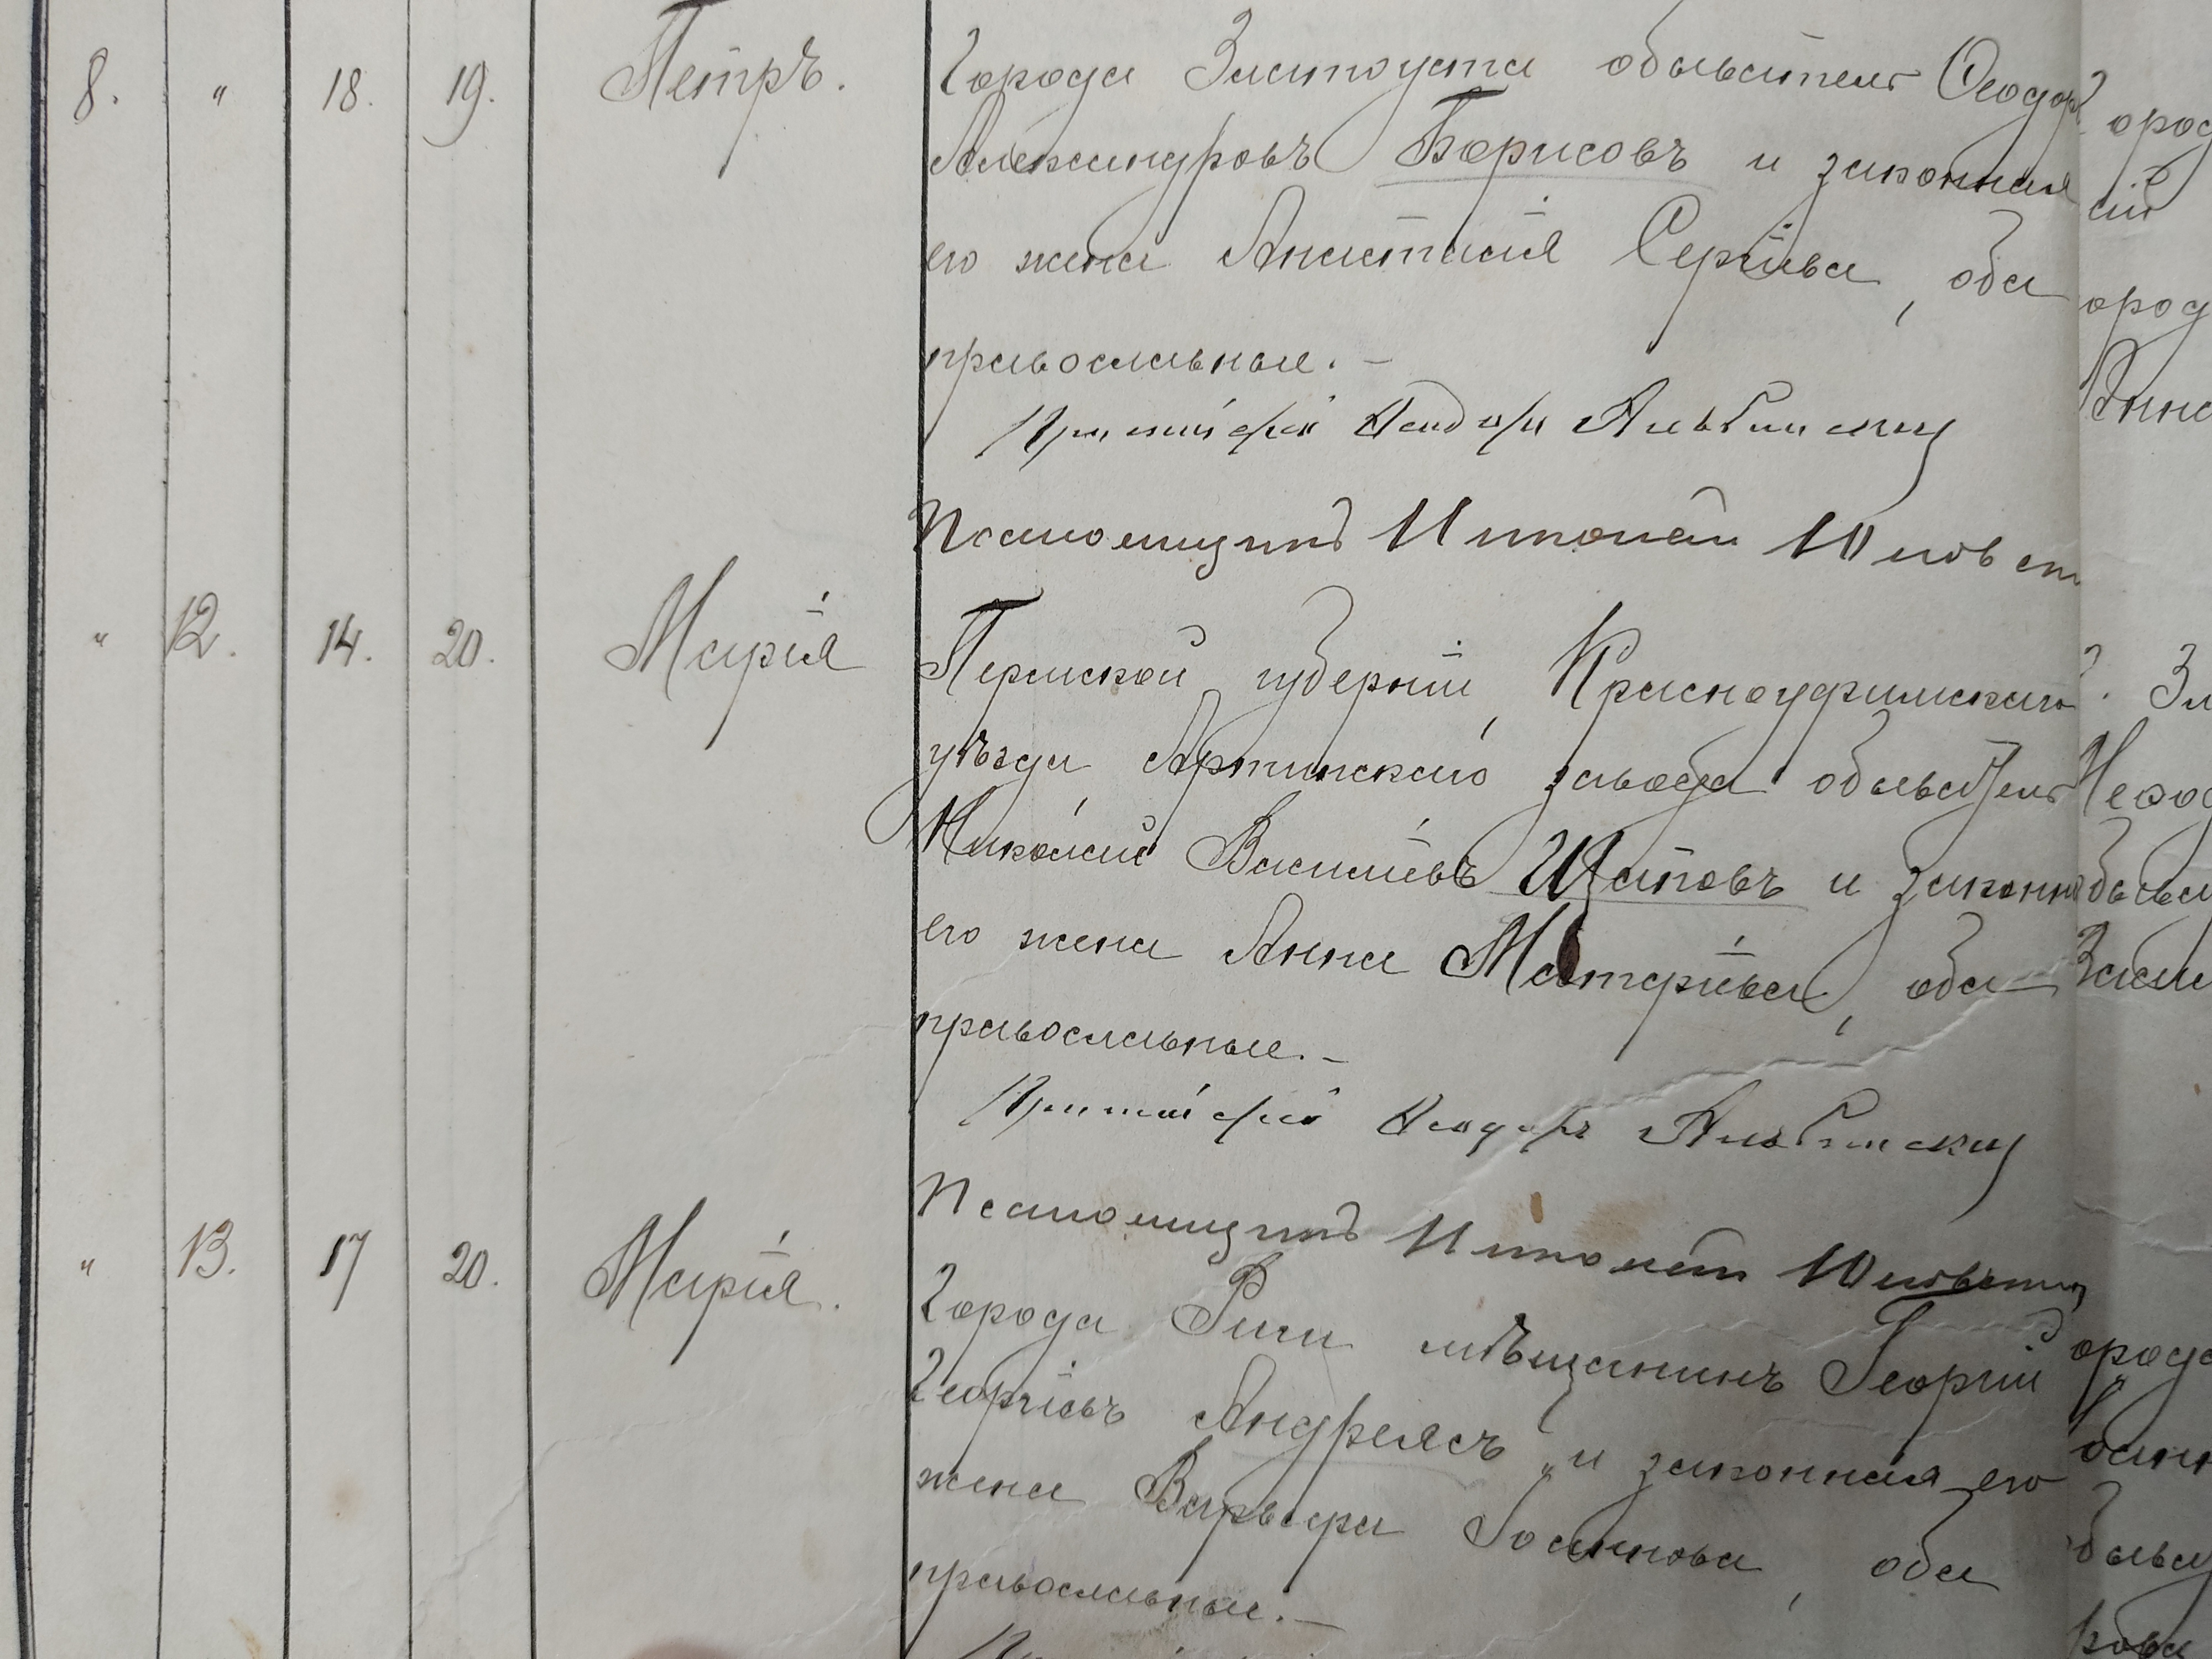 8. " 18. 19. Петръ. Города Златоуста обыватель Ѳеодоръ
Александровъ Борисовъ и законная
его жена Анастасія Сергіева, оба
православные. –
Протоіерей Ѳеодоръ Альбинскій
Псаломщикъ Николай
" 12. 14. 20. Марія Пермской губерніи, Красноуфимскаго
уѣзда Артинскаго завода обыватель
Николай Василіевъ Щаповъ и законная
его жена Анна Димитріева, оба
православные. –
Протоіерей Ѳеодоръ Альбинскій
Псаломщикъ Николай
" 13. 17 20. Марія. Города Риги мѣщанинъ Георгій
Георгіевъ Андреясъ и законная его
жена Варвара Іоаннова, оба
православные. –